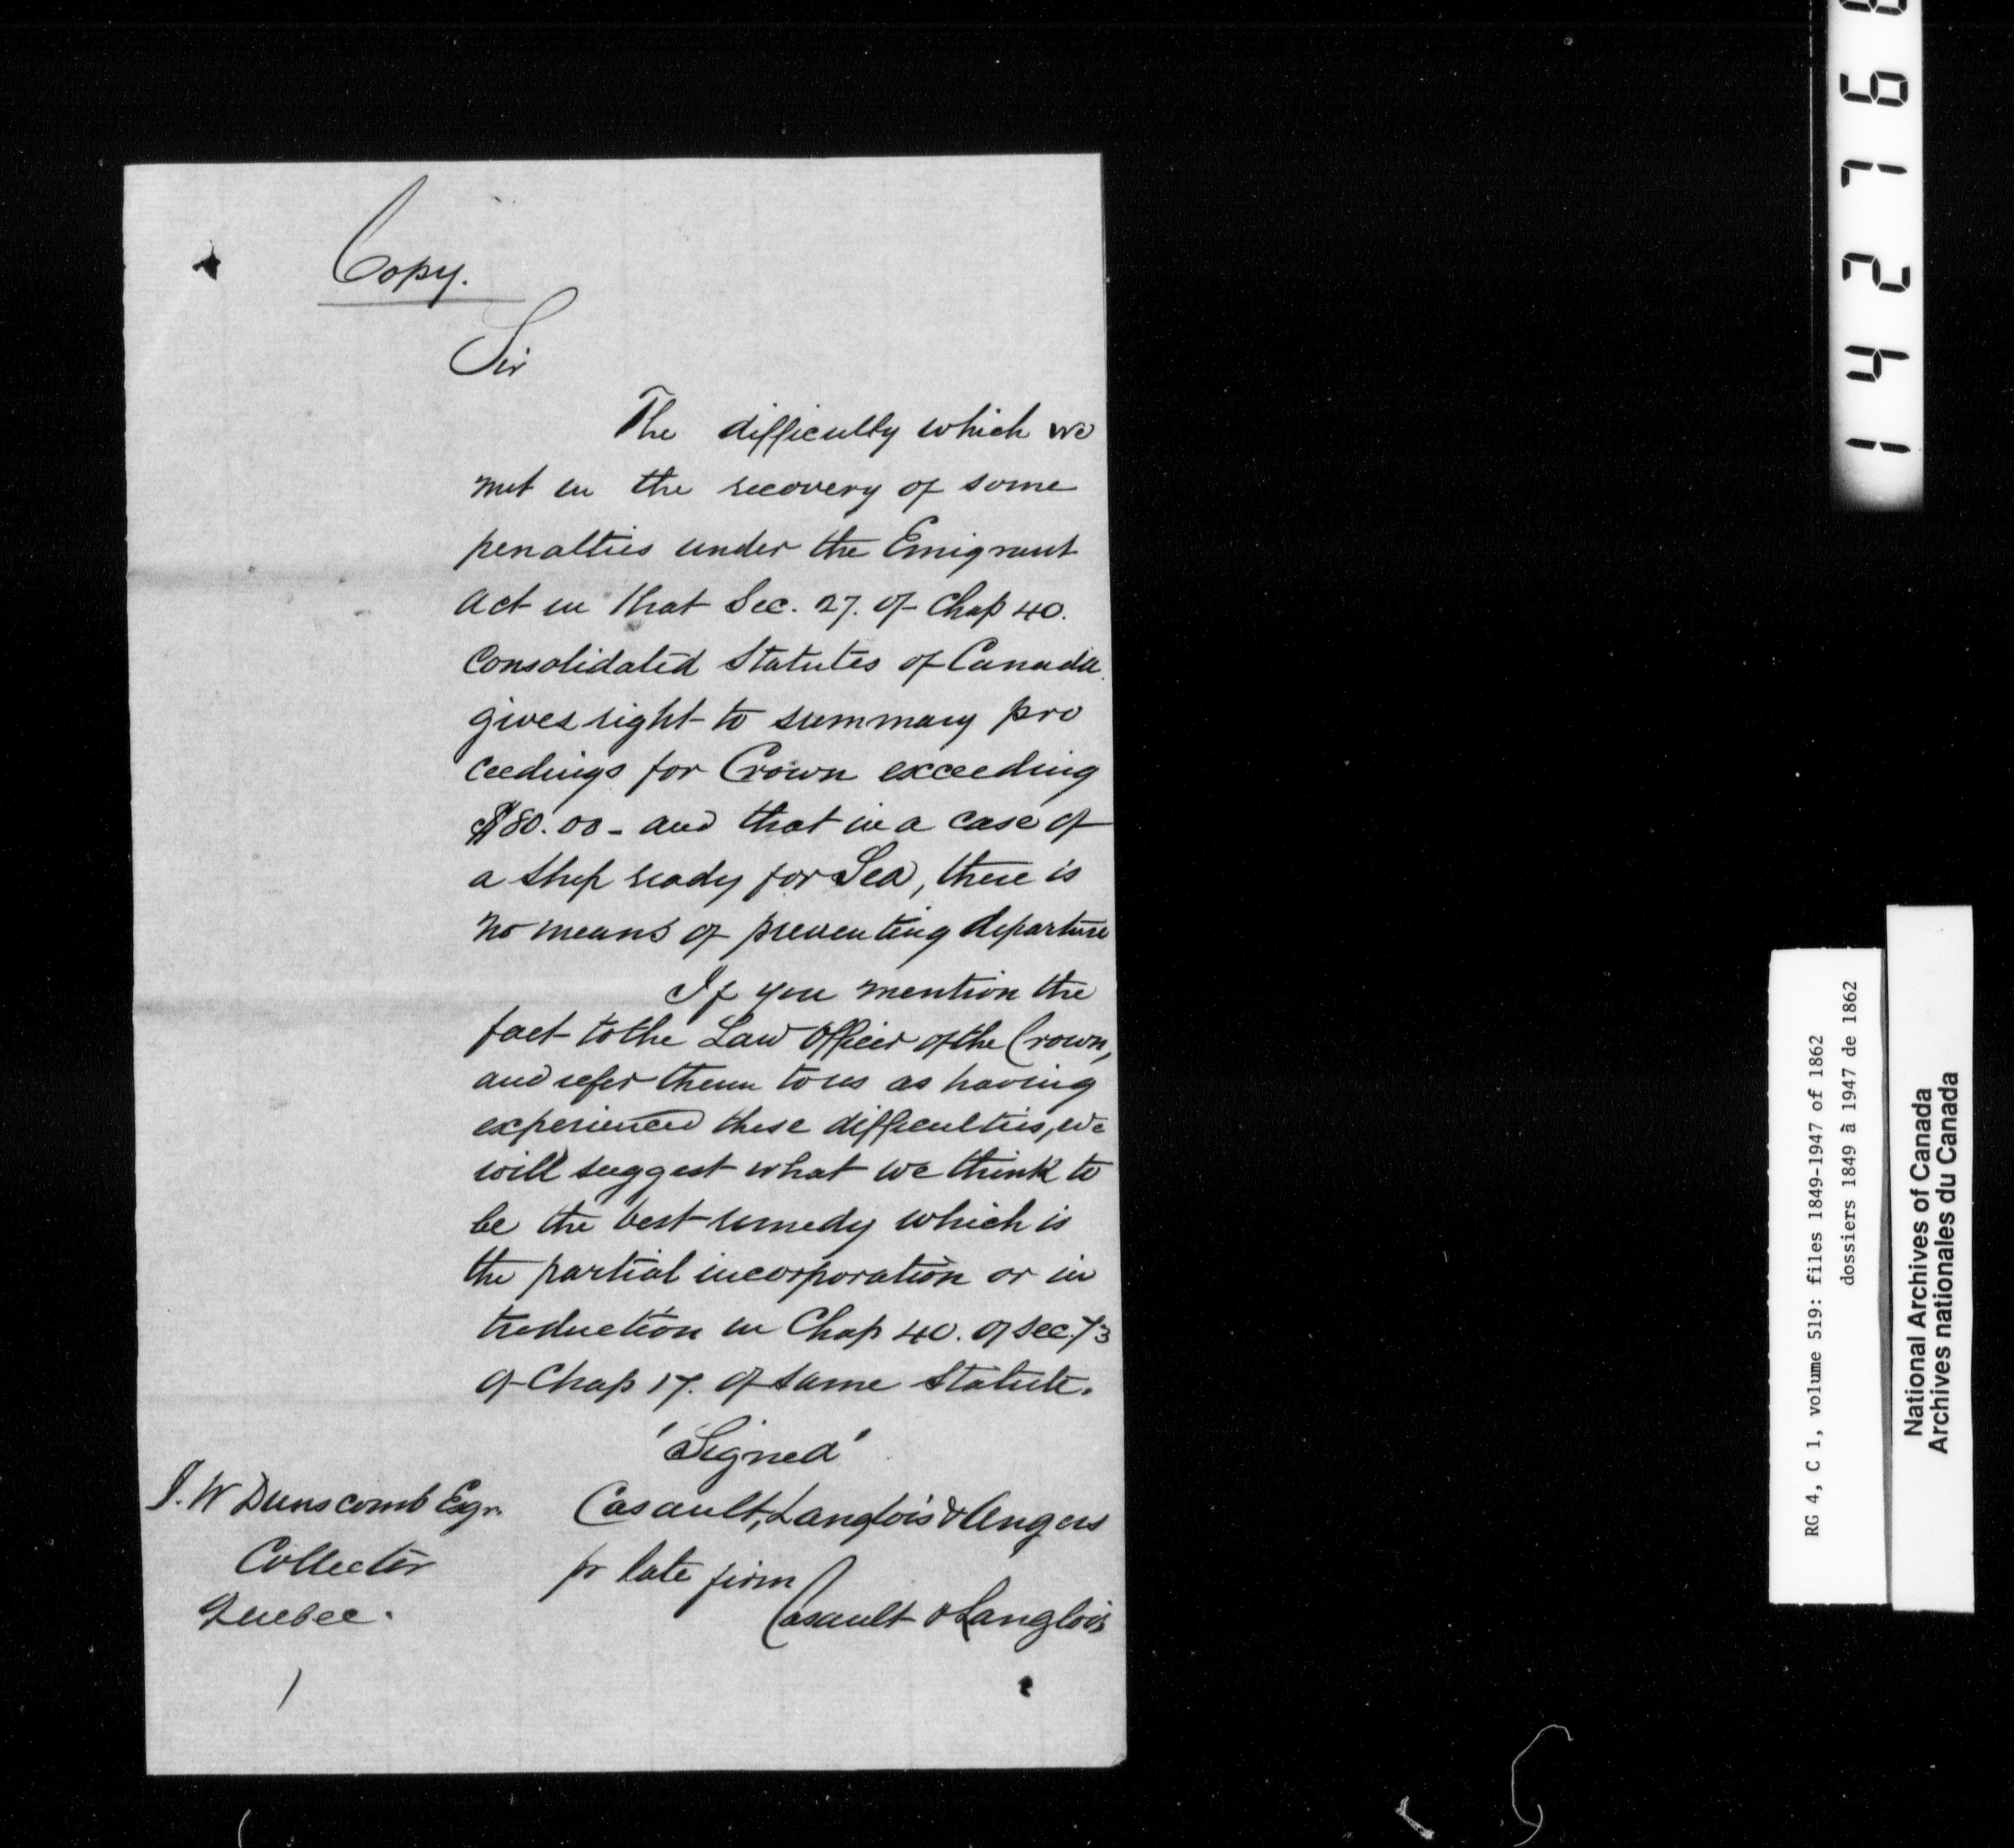 Copy.
Sir
The difficulty which we
met in the recovery of some
penalties under the Emigrant
Act in that Sec. 27. of Chap 40.
Consolidated Statutes of Canada.
gives right to summary pro
ceedings for Crown exceeding
$80.00 - and that in a case of
a ship ready for Sea, there is
no means of preventing departure
If you mention the
fact to the Law Officer of the Crown,
and refer them to us as having
experienced these difficulties, we
will suggest what we think to
be the best remedy which is
the partial incorporation or in
troduction in Chap 40. of Sec. 73
of Chap 17. of same Statute.
'Signed'
Casault, Langlois & Angers
pr late firm
Casault & Langlois
J. W Dunscomb Esqr.
Collector
Quebec.
142768
RG 4, C 1, volume 519: files 1849-1947 of 1862
dossiers 1849 à 1947 de 1862
National Archives of Canada
Archives nationales du Canada